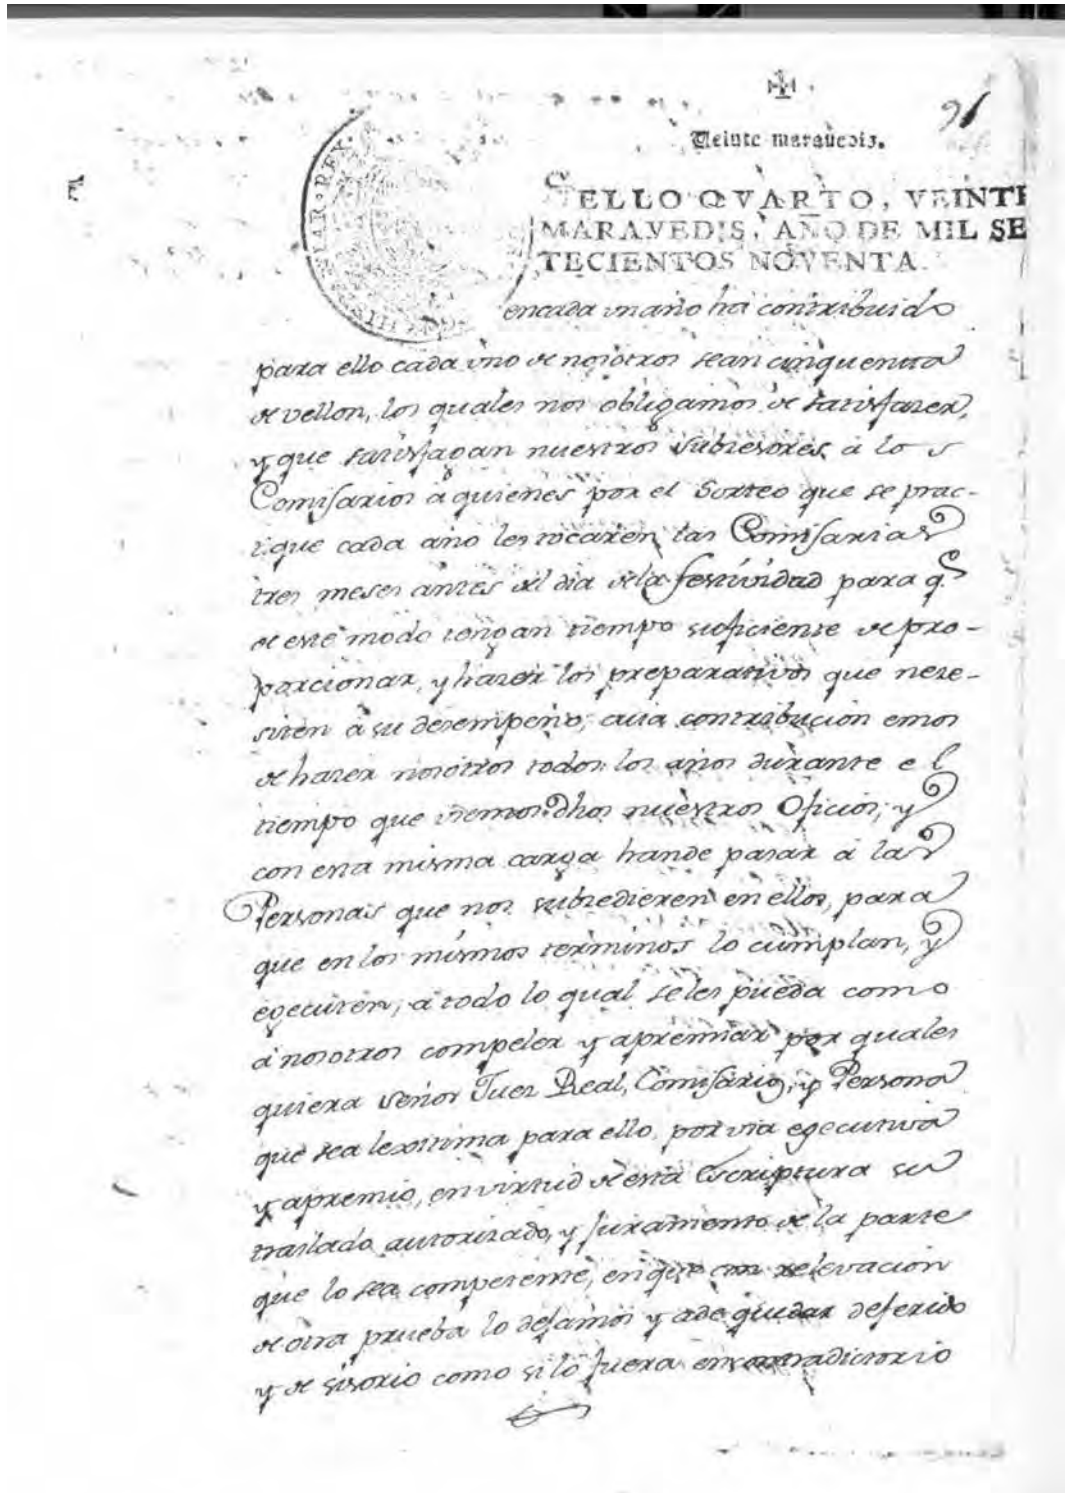 91
Veinte maravedis.
SELLO QVARTO, VEINTE
MARAVEDIS, AÑO DE MIL SE
TECIENTOS NOVENTA.
IAR·REX·
encada vn año ha contribuido
para ello cada vno de nosotros sean cinquenta
de vellon, los quales nos obligamos de satisfazer,
y que satisfagan nuestros subzesores à los
Comisarios à quienes por el Sorteo que se prac-
tique cada año les tocaren las Comisarias
tres meses antes del dia dela festividad para q.e
de este modo tengan tiempo suficiente de pro-
porcionar, y hazer los preparativos que neze-
siten à su desempeño; cuia contribucion emos
de hazer nosotros todos los años durante el
tiempo que vsemos dhos nuestros Oficios; y
con esta misma carga hande pasar à las
Personas que nos subzedieren en ellos, para
que en los mismos terminos lo cumplan, y
egecuten; à todo lo qual seles pueda como
à nosotros compeler y apremiar por quales
quiera señor Juez Real, Comisario, y Persona
que sea lexitima para ello, por via egecutiva
y apremio, en virtud de esta Escriptura su
traslado autorizado, y juramento de la parte
que lo sea competente, en que con relevacion
de otra prueba lo defamos y ade quedar deferido
y de sisorio como si lo fuera en contradictorio